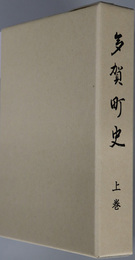 多賀町史
上巻